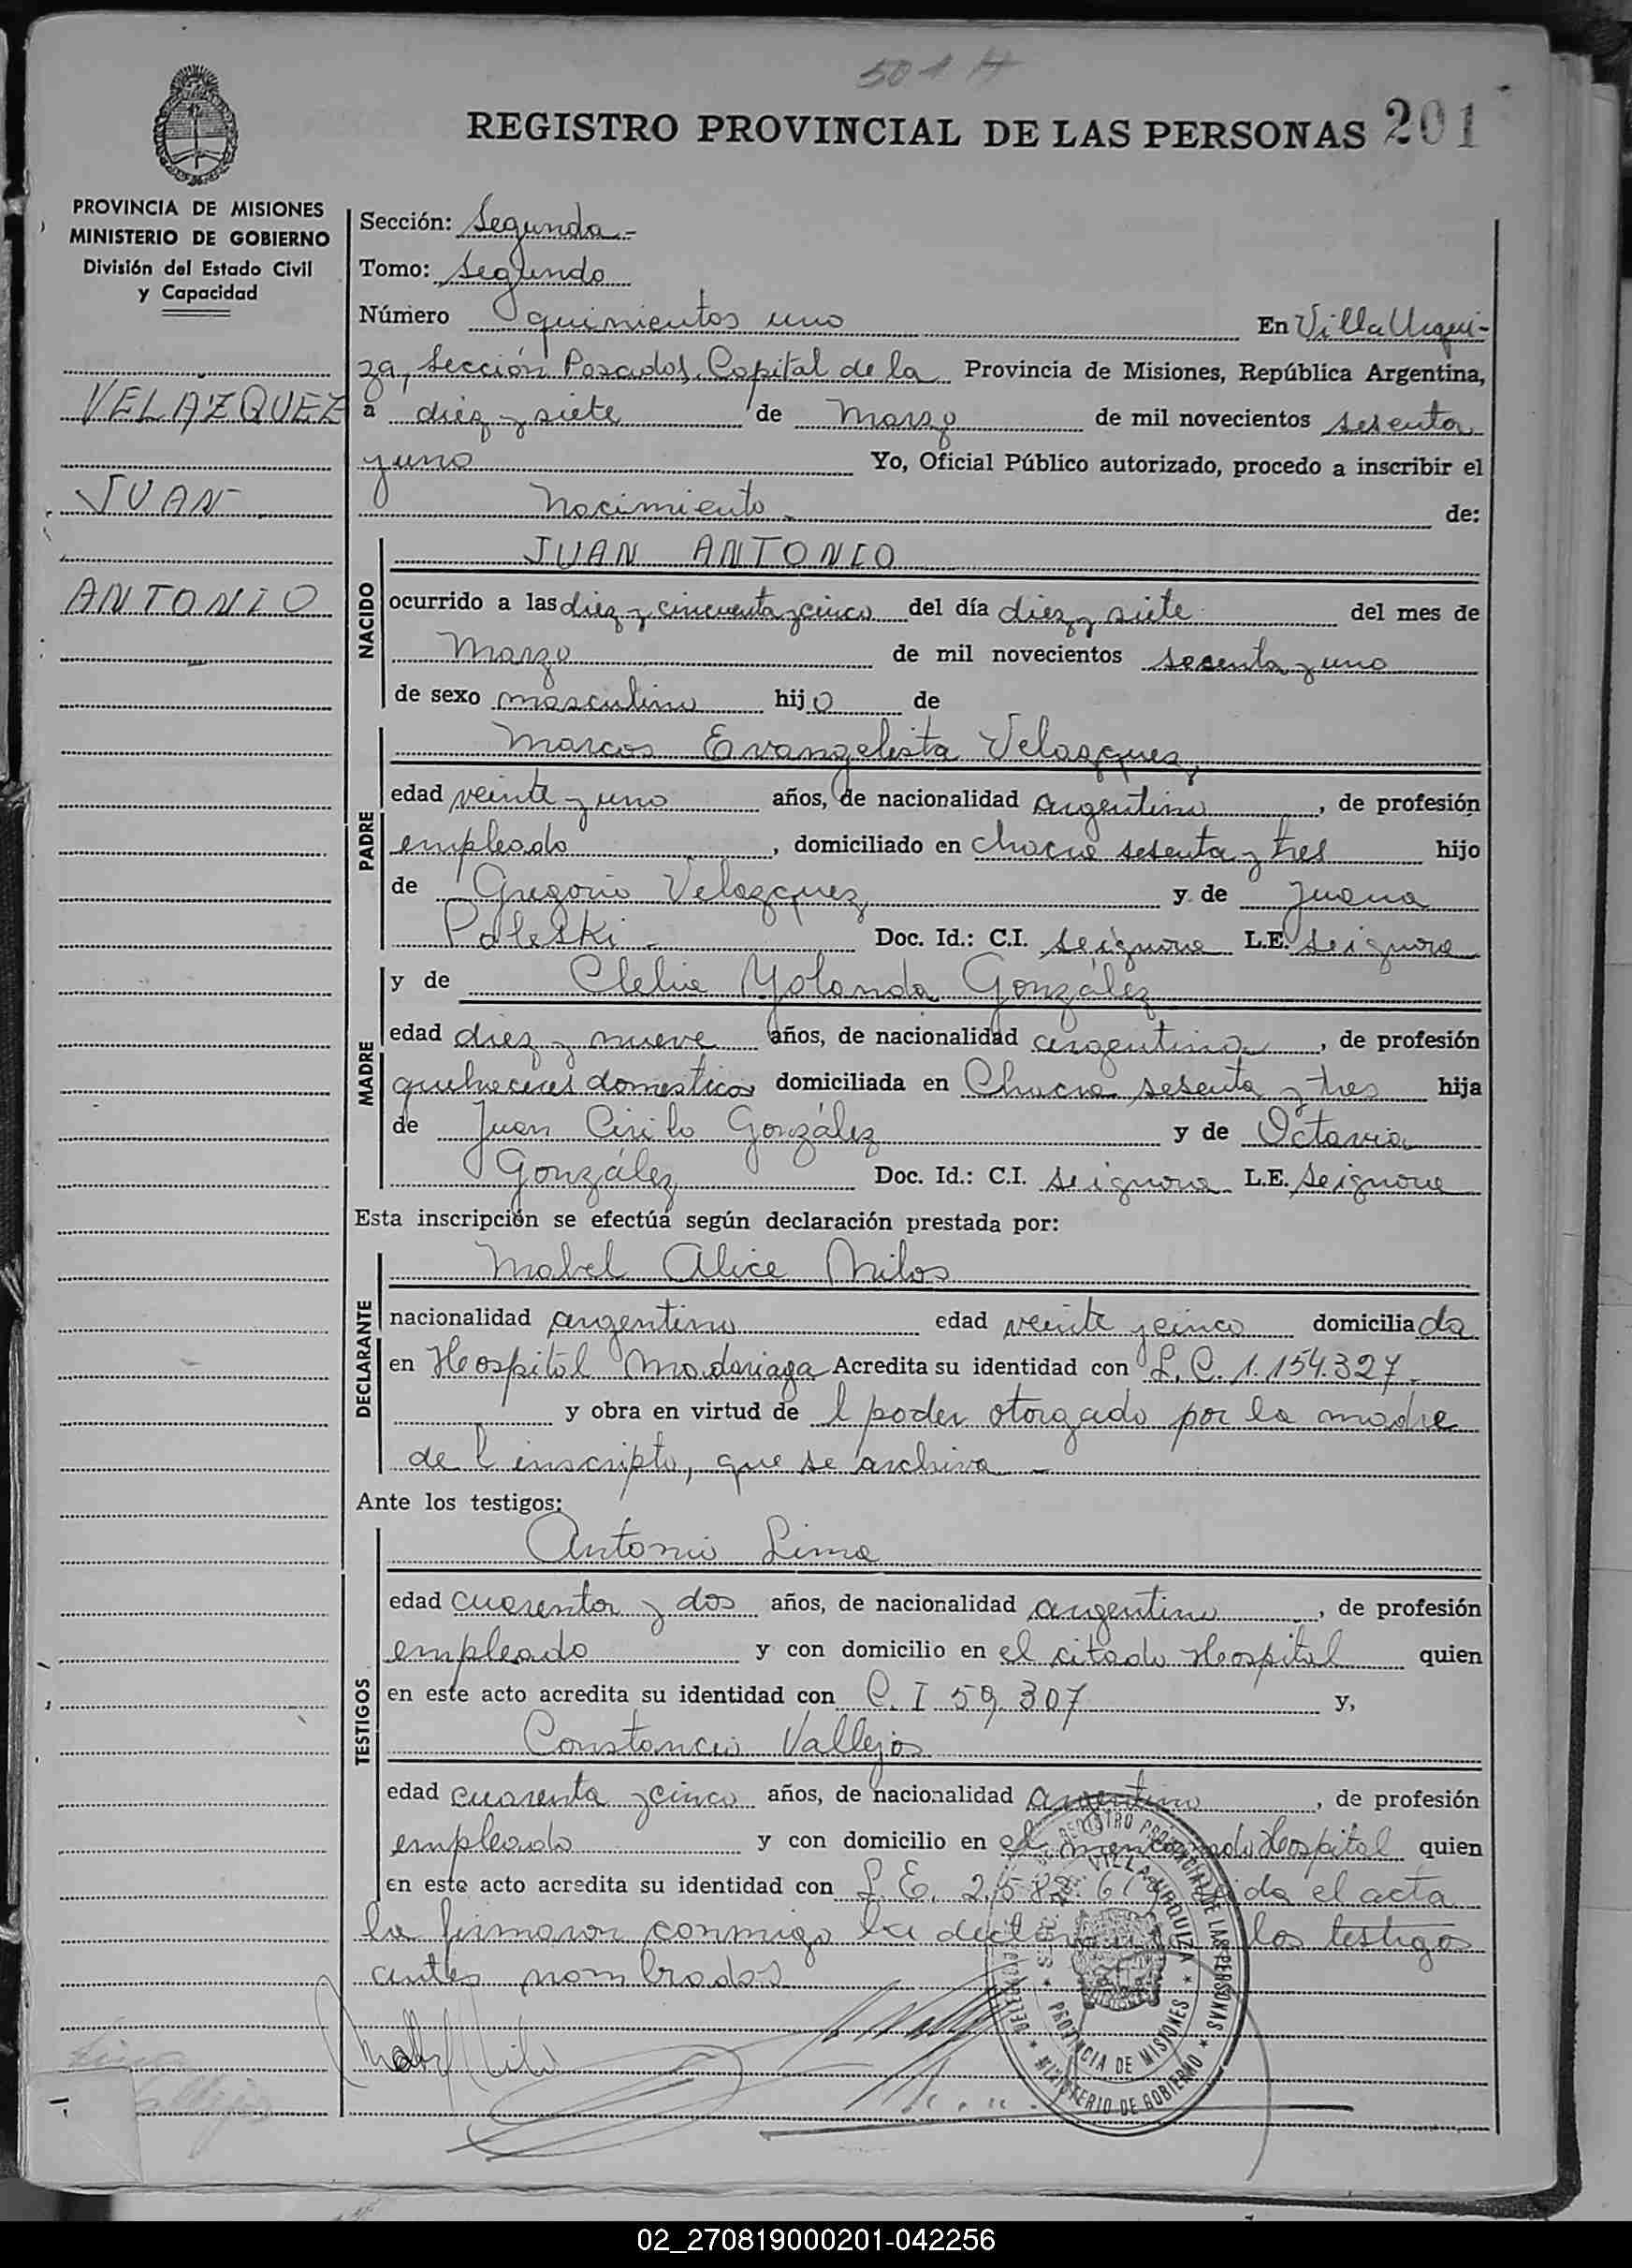 501 H
REGISTRO PROVINCIAL DE LAS PERSONAS 201
PROVINCIA DE MISIONES
MINISTERIO DE GOBIERNO
División del Estado Civil
y Capacidad
VELÁZQUEZ
JUAN
ANTONIO
Sección: Segunda-
Tomo: Segundo
Número quinientos uno En Villa Urqui-
za, Sección Posadas, Capital de la Provincia de Misiones, República Argentina,
a diez y siete de Marzo de mil novecientos sesenta
y uno Yo, Oficial Público autorizado, procedo a inscribir el
Nacimiento- de:
NACIDO
JUAN ANTONIO
ocurrido a las diez y cincuenta y cinco del día diez y siete del mes de
Marzo de mil novecientos sesenta y uno
de sexo masculino hijo de
PADRE
Marcos Evangelista Velazquez,
edad veinte y uno años, de nacionalidad argentino, de profesión
empleado, domiciliado en chacra sesenta y tres hijo
de Gregorio Velazquez, y de Juana
Paleski- Doc. Id.: C.I. se ignora L.E. se ignora
MADRE
y de Clelia Yolanda González
edad diez y nueve años, de nacionalidad argentina, de profesión
quehaceres domesticos domiciliada en Chacra sesenta y tres hija
de Juan Cirilo González y de Octavia
González Doc. Id.: C.I. se ignora L.E. se ignora
Esta inscripción se efectúa según declaración prestada por:
DECLARANTE
Mabel Alice Milos
nacionalidad argentina edad veinte y cinco domiciliada
en Hospital Madariaga Acredita su identidad con L.C. 1.154.327-
y obra en virtud de l poder otorgado por la madre
de l inscripto, que se archiva-
Ante los testigos:
TESTIGOS
Antonio Lima
edad cuarenta y dos años, de nacionalidad argentino, de profesión
empleado y con domicilio en el citado Hospital quien
en este acto acredita su identidad con C.I 59.307 y,
Constancio Vallejos
edad cuarenta y cinco años, de nacionalidad argentino, de profesión
empleado y con domicilio en el mencionado Hospital quien
en este acto acredita su identidad con L.E. el acta
la firmaron conmigo la los testigos
antes nombrados
REGISTRO PROVINCIAL DE LAS PERSONAS
VILLA URQUIZA
PROVINCIA DE MISIONES
MINISTERIO DE GOBIERNO
Lima
Vallejos
02_270819000201-042256